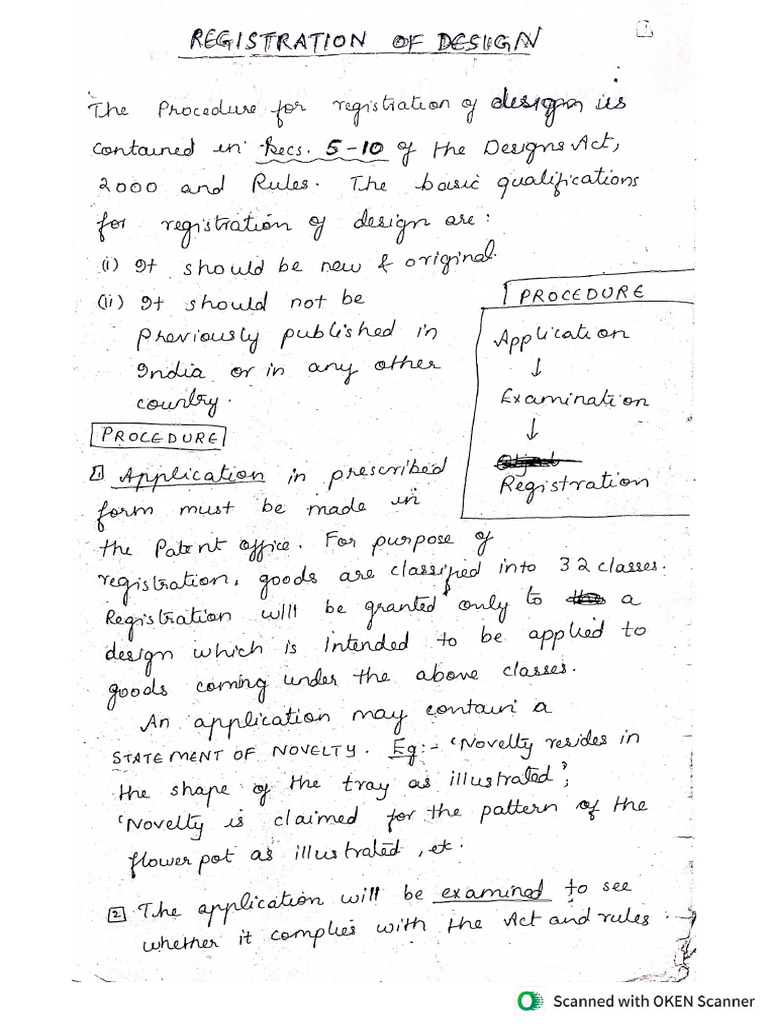 REGISTRATION OF DESIGN
1
The Procedure for registration of design is
contained in Secs. 5-10 of the Designs Act,
2000 and Rules. The basic qualifications
for registration of design are:
(i) It should be new & original.
(ii) It should not be
previously published in
India or in any other
country.
PROCEDURE
Application
↓
Examination
↓
Registration
PROCEDURE
1 Application in prescribed
form must be made in
the Patent office. For purpose of
registration, goods are classified into 32 classes.
Registration will be granted only to a
design which is intended to be applied to
goods coming under the above classes.
An application may contain a
STATEMENT OF NOVELTY. Eg:- 'Novelty resides in
the shape of the tray as illustrated';
'Novelty is claimed for the pattern of the
flower pot as illustrated, etc.
2 The application will be examined to see
whether it complies with the Act and rules.
Scanned with OKEN Scanner